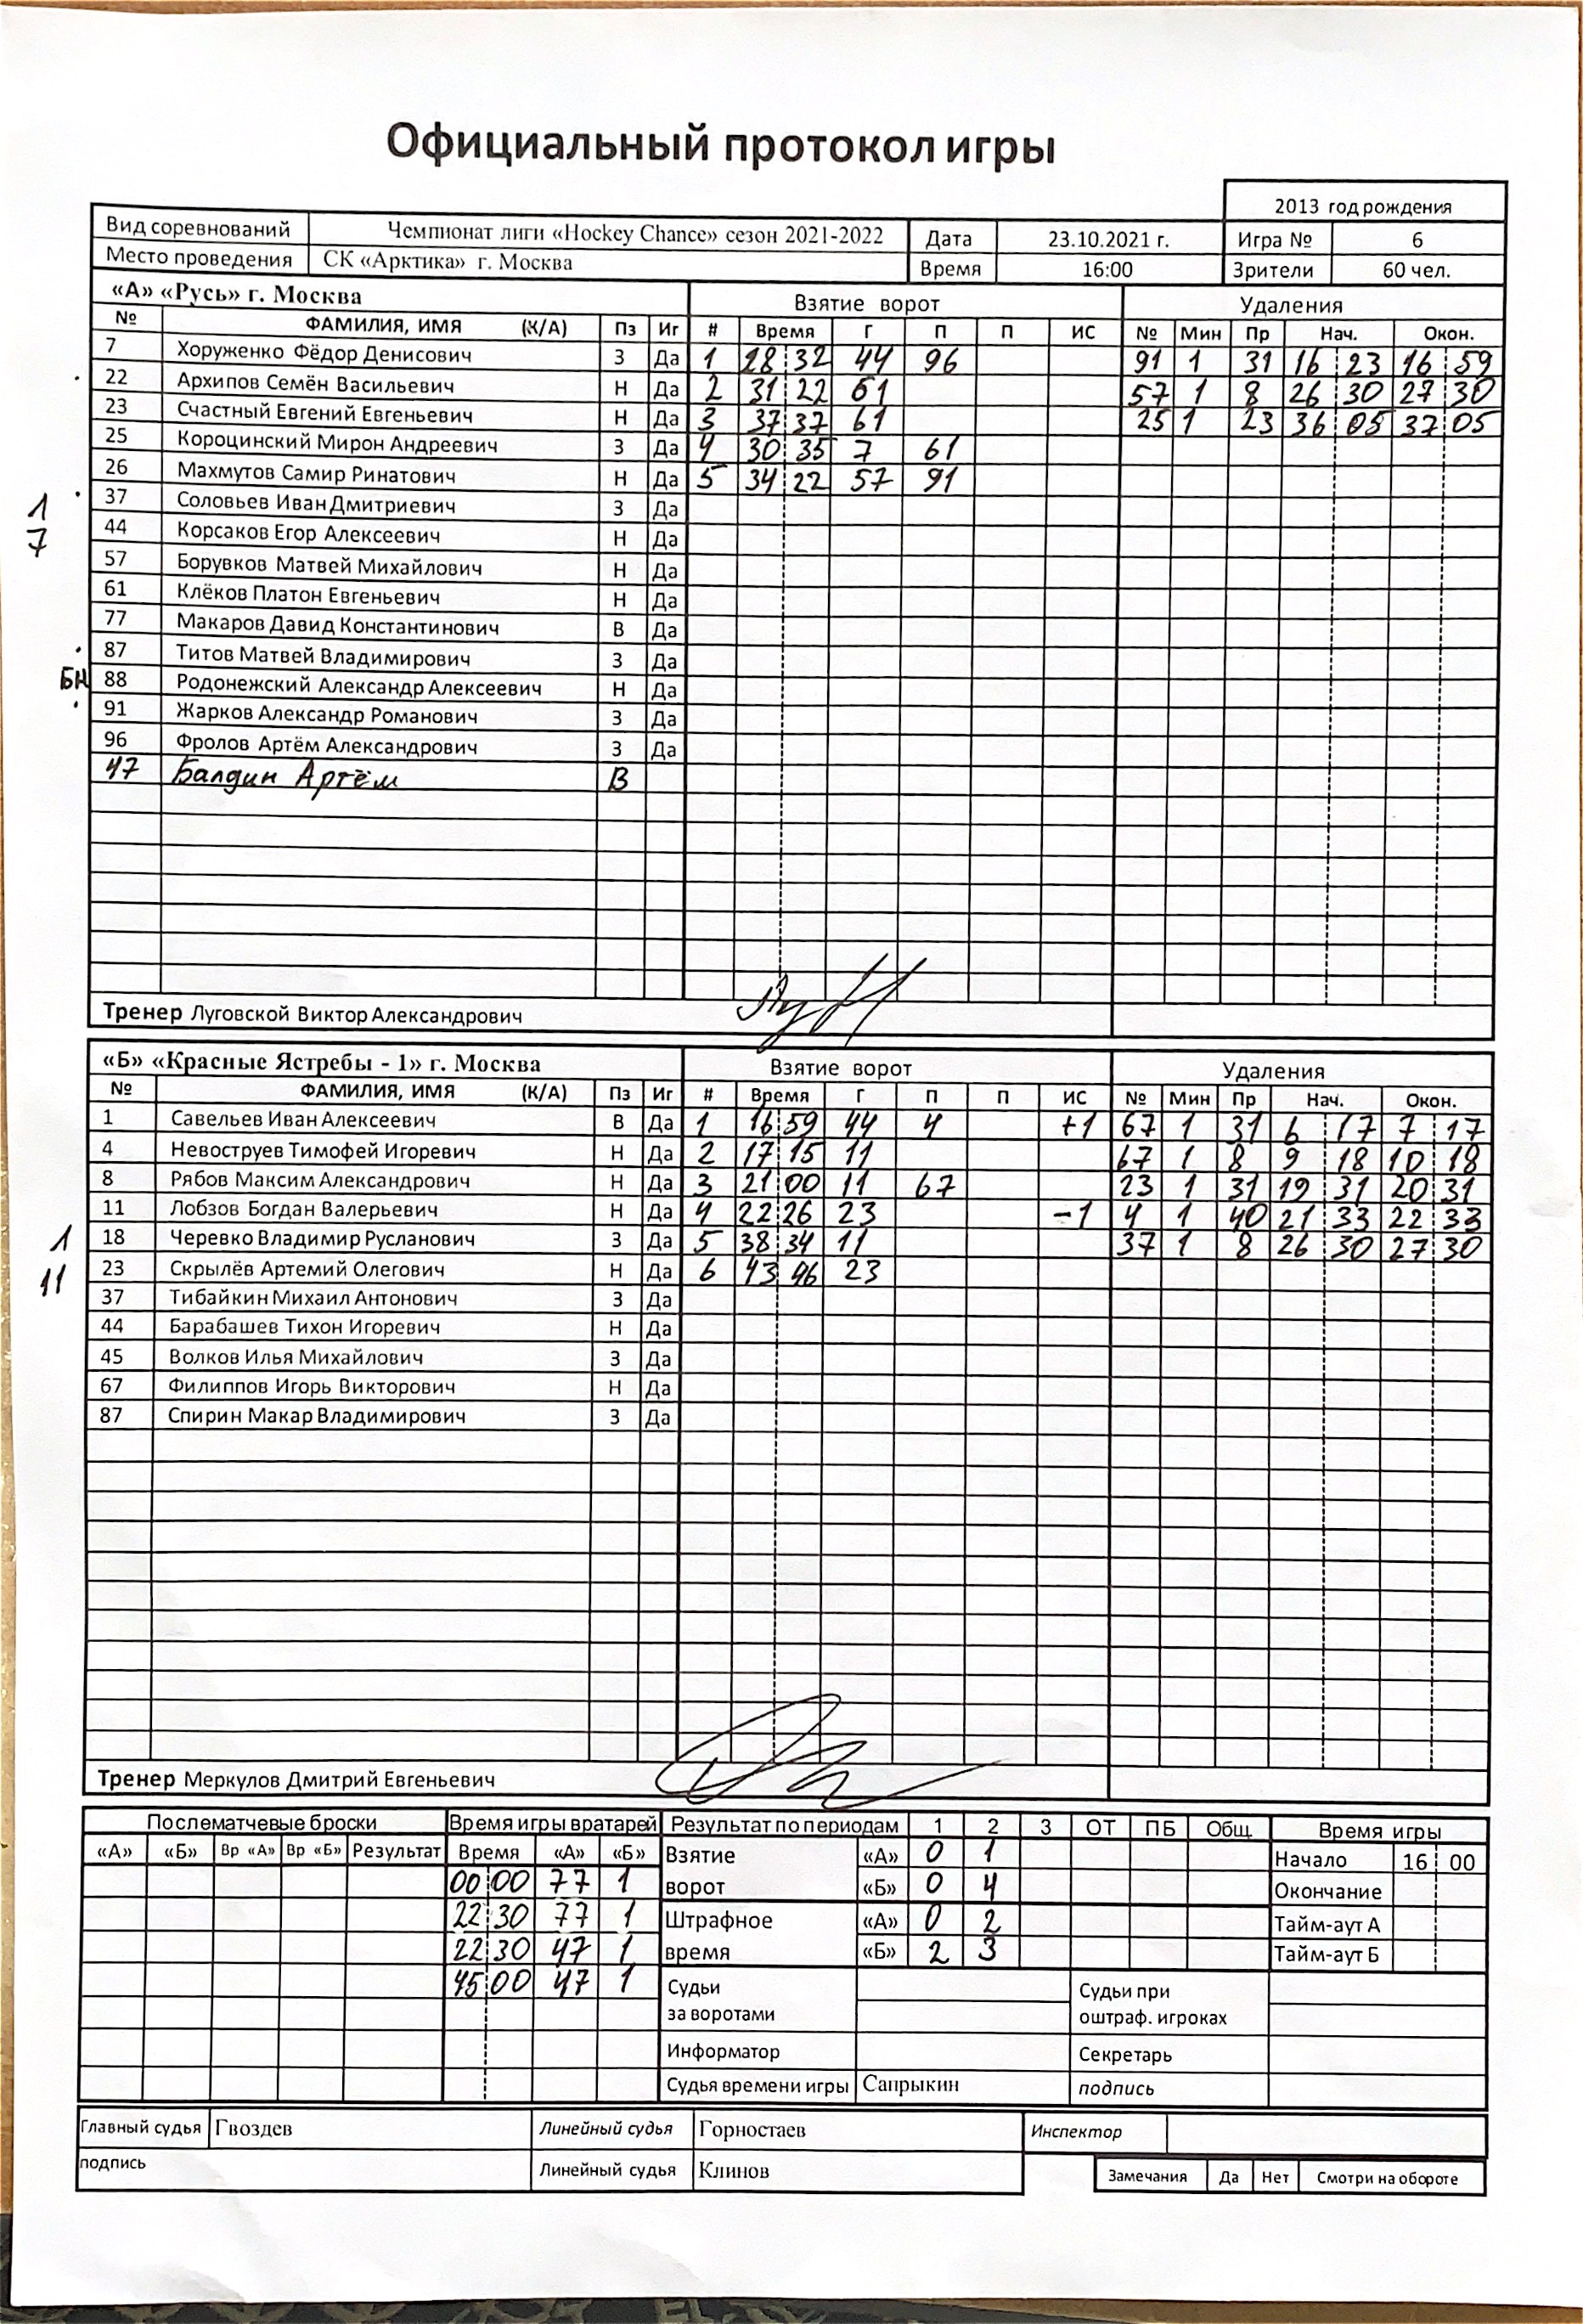 Официальный протокол игры
2013 год рождения
Вид соревнований Чемпионат лиги «Hockey Chance» сезон 2021-2022 Дата 23.10.2021 г. Игра № 6
Место проведения СК «Арктика» г. Москва Время 16:00 Зрители 60 чел.
«А» «Русь» г. Москва Взятие ворот Удаления
№ ФАМИЛИЯ, ИМЯ (К/А) Пз Иг # Время Г П П ИС № Мин Пр Нач. Окон.
7 Хоруженко Фёдор Денисович З Да 1 28 32 44 96 91 1 31 16 23 16 59
22 Архипов Семён Васильевич Н Да 2 31 22 61 57 1 8 26 30 27 30
23 Счастный Евгений Евгеньевич Н Да 3 37 37 61 25 1 23 36 05 37 05
25 Короцинский Мирон Андреевич З Да 4 30 35 7 61
26 Махмутов Самир Ринатович Н Да 5 34 22 57 91
1 37 Соловьев Иван Дмитриевич З Да
7 44 Корсаков Егор Алексеевич Н Да
57 Борувков Матвей Михайлович Н Да
61 Клёков Платон Евгеньевич Н Да
77 Макаров Давид Константинович В Да
87 Титов Матвей Владимирович З Да
БН 88 Родонежский Александр Алексеевич Н Да
91 Жарков Александр Романович З Да
96 Фролов Артём Александрович З Да
47 Балдин Артём В
Тренер Луговской Виктор Александрович
«Б» «Красные Ястребы - 1» г. Москва Взятие ворот Удаления
№ ФАМИЛИЯ, ИМЯ (К/А) Пз Иг # Время Г П П ИС № Мин Пр Нач. Окон.
1 Савельев Иван Алексеевич В Да 1 16 59 44 4 +1 67 1 31 6 17 7 17
4 Невоструев Тимофей Игоревич Н Да 2 17 15 11 67 1 8 9 18 10 18
8 Рябов Максим Александрович Н Да 3 21 00 11 67 23 1 31 19 31 20 31
11 Лобзов Богдан Валерьевич Н Да 4 22 26 23 -1 4 1 40 21 33 22 33
1 18 Черевко Владимир Русланович З Да 5 38 34 11 37 1 8 26 30 27 30
11 23 Скрылёв Артемий Олегович Н Да 6 43 46 23
37 Тибайкин Михаил Антонович З Да
44 Барабашев Тихон Игоревич Н Да
45 Волков Илья Михайлович З Да
67 Филиппов Игорь Викторович Н Да
87 Спирин Макар Владимирович З Да
Тренер Меркулов Дмитрий Евгеньевич
Послематчевые броски Время игры вратарей Результат по периодам 1 2 3 ОТ ПБ Общ. Время игры
«А» «Б» Вр «А» Вр «Б» Результат Время «А» «Б» Взятие «А» 0 1 Начало 16 00
00 00 77 1 ворот «Б» 0 4 Окончание
22 30 77 1 Штрафное «А» 0 2 Тайм-аут А
22 30 47 1 время «Б» 2 3 Тайм-аут Б
45 00 47 1 Судьи Судьи при
за воротами оштраф. игроках
Информатор Секретарь
Судья времени игры Сапрыкин подпись
Главный судья Гвоздев Линейный судья Горностаев Инспектор
подпись Линейный судья Клинов Замечания Да Нет Смотри на обороте